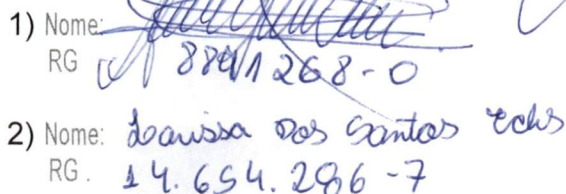 1) Nome:
RG 8841268-0
2) Nome: Larissa dos Santos
RG. 14.654.286-7